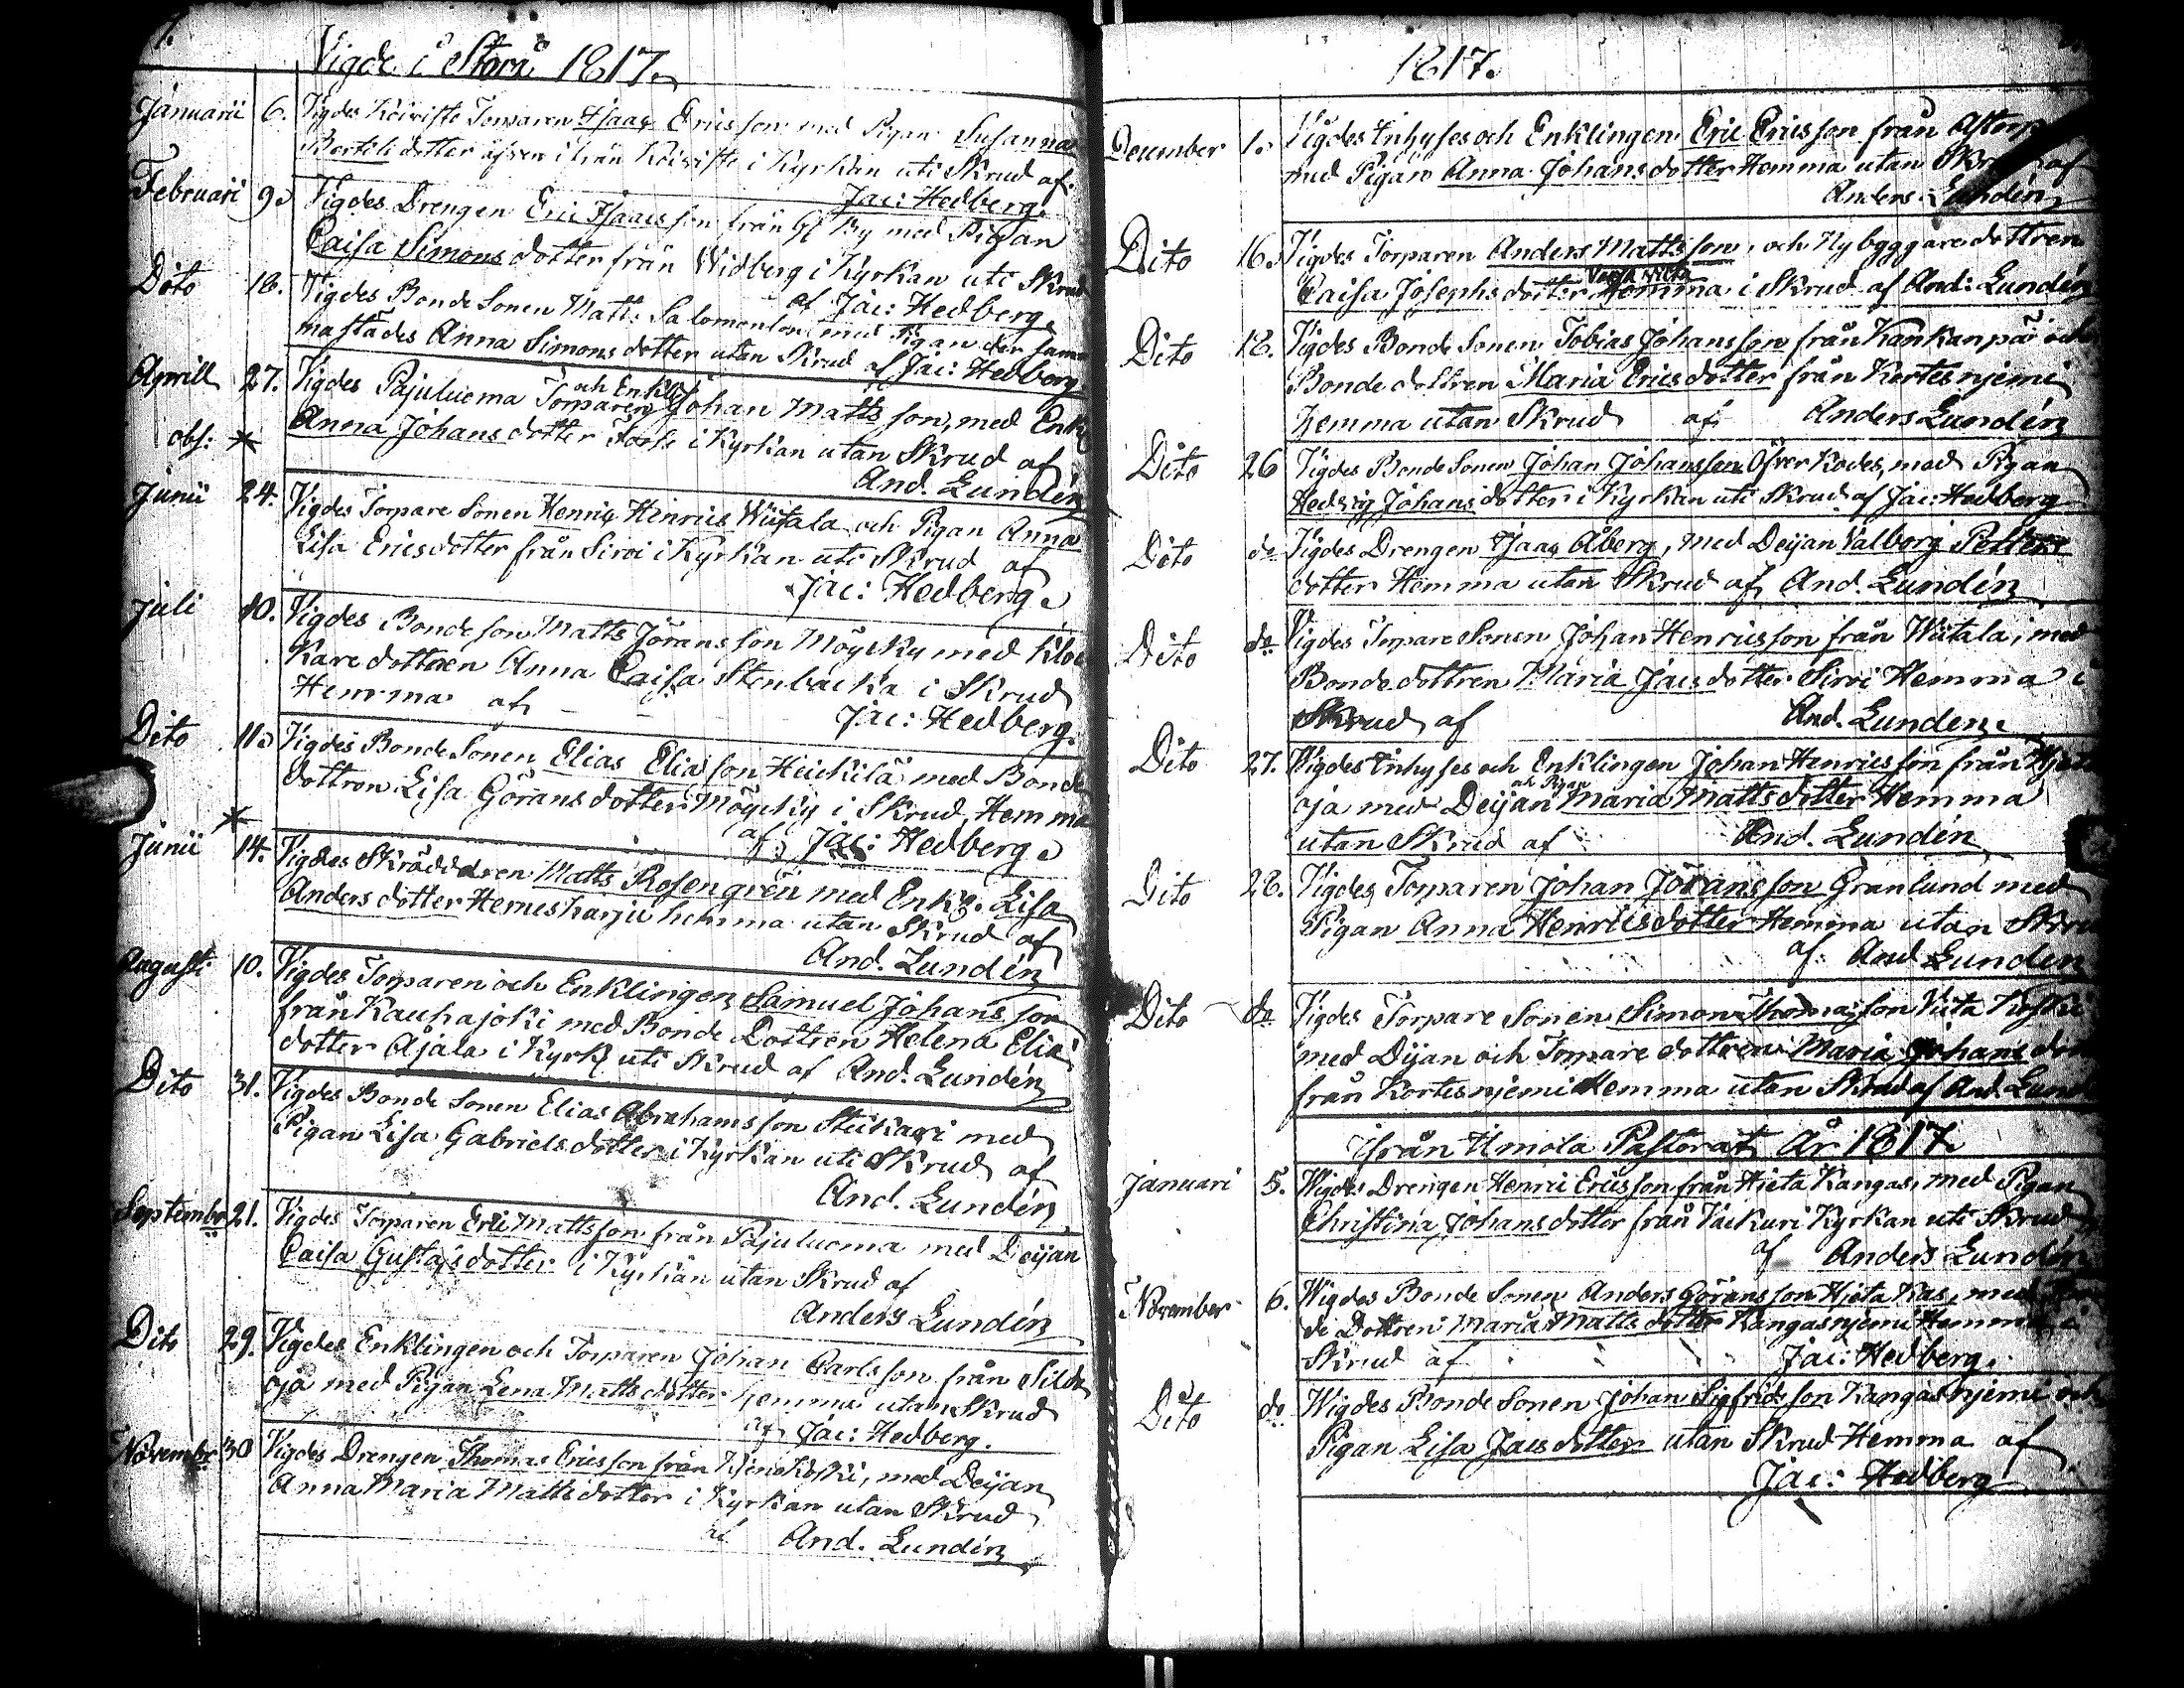 1.
Vigde i Storå 1817.
Januarii 6. Vigdes Koiviste Torparen Isaac Ericsson med Pigan Susanna
Bertils dotter äfven ifrån Koiviste i Kyrkan uti Skrud af
Jac: Hedberg.
Februari 9. Vigdes Drengen Eric Isaacsson från By med Pigan
Caisa Simons dotter från Widberg i Kyrkan uti Skrud
af Jac: Hedberg.
Dito 18. Vigdes Bonde Sonen Matts Salomonson med Pigan der sam
mastädes Anna Simons dotter utan Skrud af Jac: Hedberg
Aprill 27. Vigdes Pajuluoma Torparen och Enkl. Johan Matts son, med Enk
Anna Johans dotter Fors i Kyrkan utan Skrud af
obs: * And. Lundén
Junii 24. Vigdes Torpare Sonen Henric Hinrics Wiitala och Pigan Anna
Lisa Ericsdotter från Siroi i Kyrkan uti Skrud af
Jac: Hedberg.
Juli 10. Vigdes Bonde son Matts Jöransson Möyrky med Kloc
kare dottren Anna Caisa Stenbacka i Skrud
Hemma af Jac: Hedberg.
Dito 11. Vigdes Bonde Sonen Elias Eliasson Heickilä med Bonde
dottren Lisa Görans dotter Möyrky i Skrud, Hemma
af Jac: Hedberg.
*
Junii 14. Vigdes Skräddaren Matts Rosengren med Enk. Lisa
Anders dotter Hemesharju hemma utan Skrud af
And. Lundén
Augusti 10. Vigdes Torparen och Enklingen Samuel Johans son
från Kauhajoki med Bonde Dottren Helena Elia
dotter Ajala i Kyrk. uti Skrud af And. Lundén
Dito 31. Vigdes Bonde Sonen Elias Abrahamsson Steikari med
Pigan Lisa Gabriels dotter i Kyrkan uti Skrud af
And. Lundén
Septembr 21. Vigdes Torparen Eric Mattsson från Pajuluoma med Deijan
Caisa Gustafs dotter i Kyrkan utan Skrud af
Anders Lundén
Dito 29. Vigdes Enklingen och Torparen Johan Carlsson från Silda
oja med Pigan Lena Matts dotter hemma utan Skrud
af Jac: Hedberg.
Novembr 30 Vigdes Drengen Thomas Ericsson från koski, med Deijan
Anna Maria Matts dotter i Kyrkan utan Skrud
af And. Lundén
1817.
December 1. Vigdes Inhyses och Enklingen Eric Ericsson från
med Pigan Anna Johans dotter Hemma utan af
Anders Lundén
Dito 16. Vigdes Torparen Anders Mattsson, och Nybyggare dottren
Caisa Josephs dotter Hemma i Skrud af And: Lundén
Dito 18. Vigdes Bonde Sonen Tobias Johansson från Kankanpää och
Bonde dottren Maria Erics dotter från Kortesnjemi
hemma utan Skrud af Anders Lundén
Dito 26 Vigdes Bonde Sonen Johan Johansson Öfver Kodes, med Pigan
Hedvig Johans dotter i Kyrkan uti Skrud af Jac: Hedberg
Dito do Vigdes Drengen Isaac Åberg, med Deijan Valborg Petters
dotter Hemma utan Skrud af And. Lundén
Dito do Vigdes Torpare Sonen Johan Henricsson från Wiitala, med
Bonde dottren Maria Jacs dotter Siroi Hemma i
Skrud af And. Lundén.
Dito 27. Vigdes Inhyses och Enklingen Johan Henricsson från
oja med Deijan och Pigan Maria Matts dotter Hemma
utan Skrud af And. Lundén
Dito 28. Vigdes Torparen Johan Jöransson Granlund med
Pigan Anna Henrics dotter Hemma utan Skru
af And Lundén
Dito do Vigdes Torpare Sonen Simon Thomasson Viita Koski
med Dijan och Torpare dottren Maria Johans
från Kortesnjemi Hemma utan Skrud af And. Lund
ifrån Ilmola Pastorat År 1817
Januari 5. Wigdes Drengen Henric Ericsson från Hieta Kangas, med Pigan
Christina Johans dotter från Väckuri Kyrkan uti Skrud
af Anders Lundén
November 6. Wigdes Bonde Sonen Anders Göransson Hjeta Kas, med
de Dottren Maria Matts dotter Kangasnjemi Hemma i
Skrud af Jac: Hedberg.
Dito do Wigdes Bonde Sonen Johan Sigfridsson Kangasnjemi och
Pigan Lisa Jacs dotter utan Skrud Hemma af
Jac: Hedberg